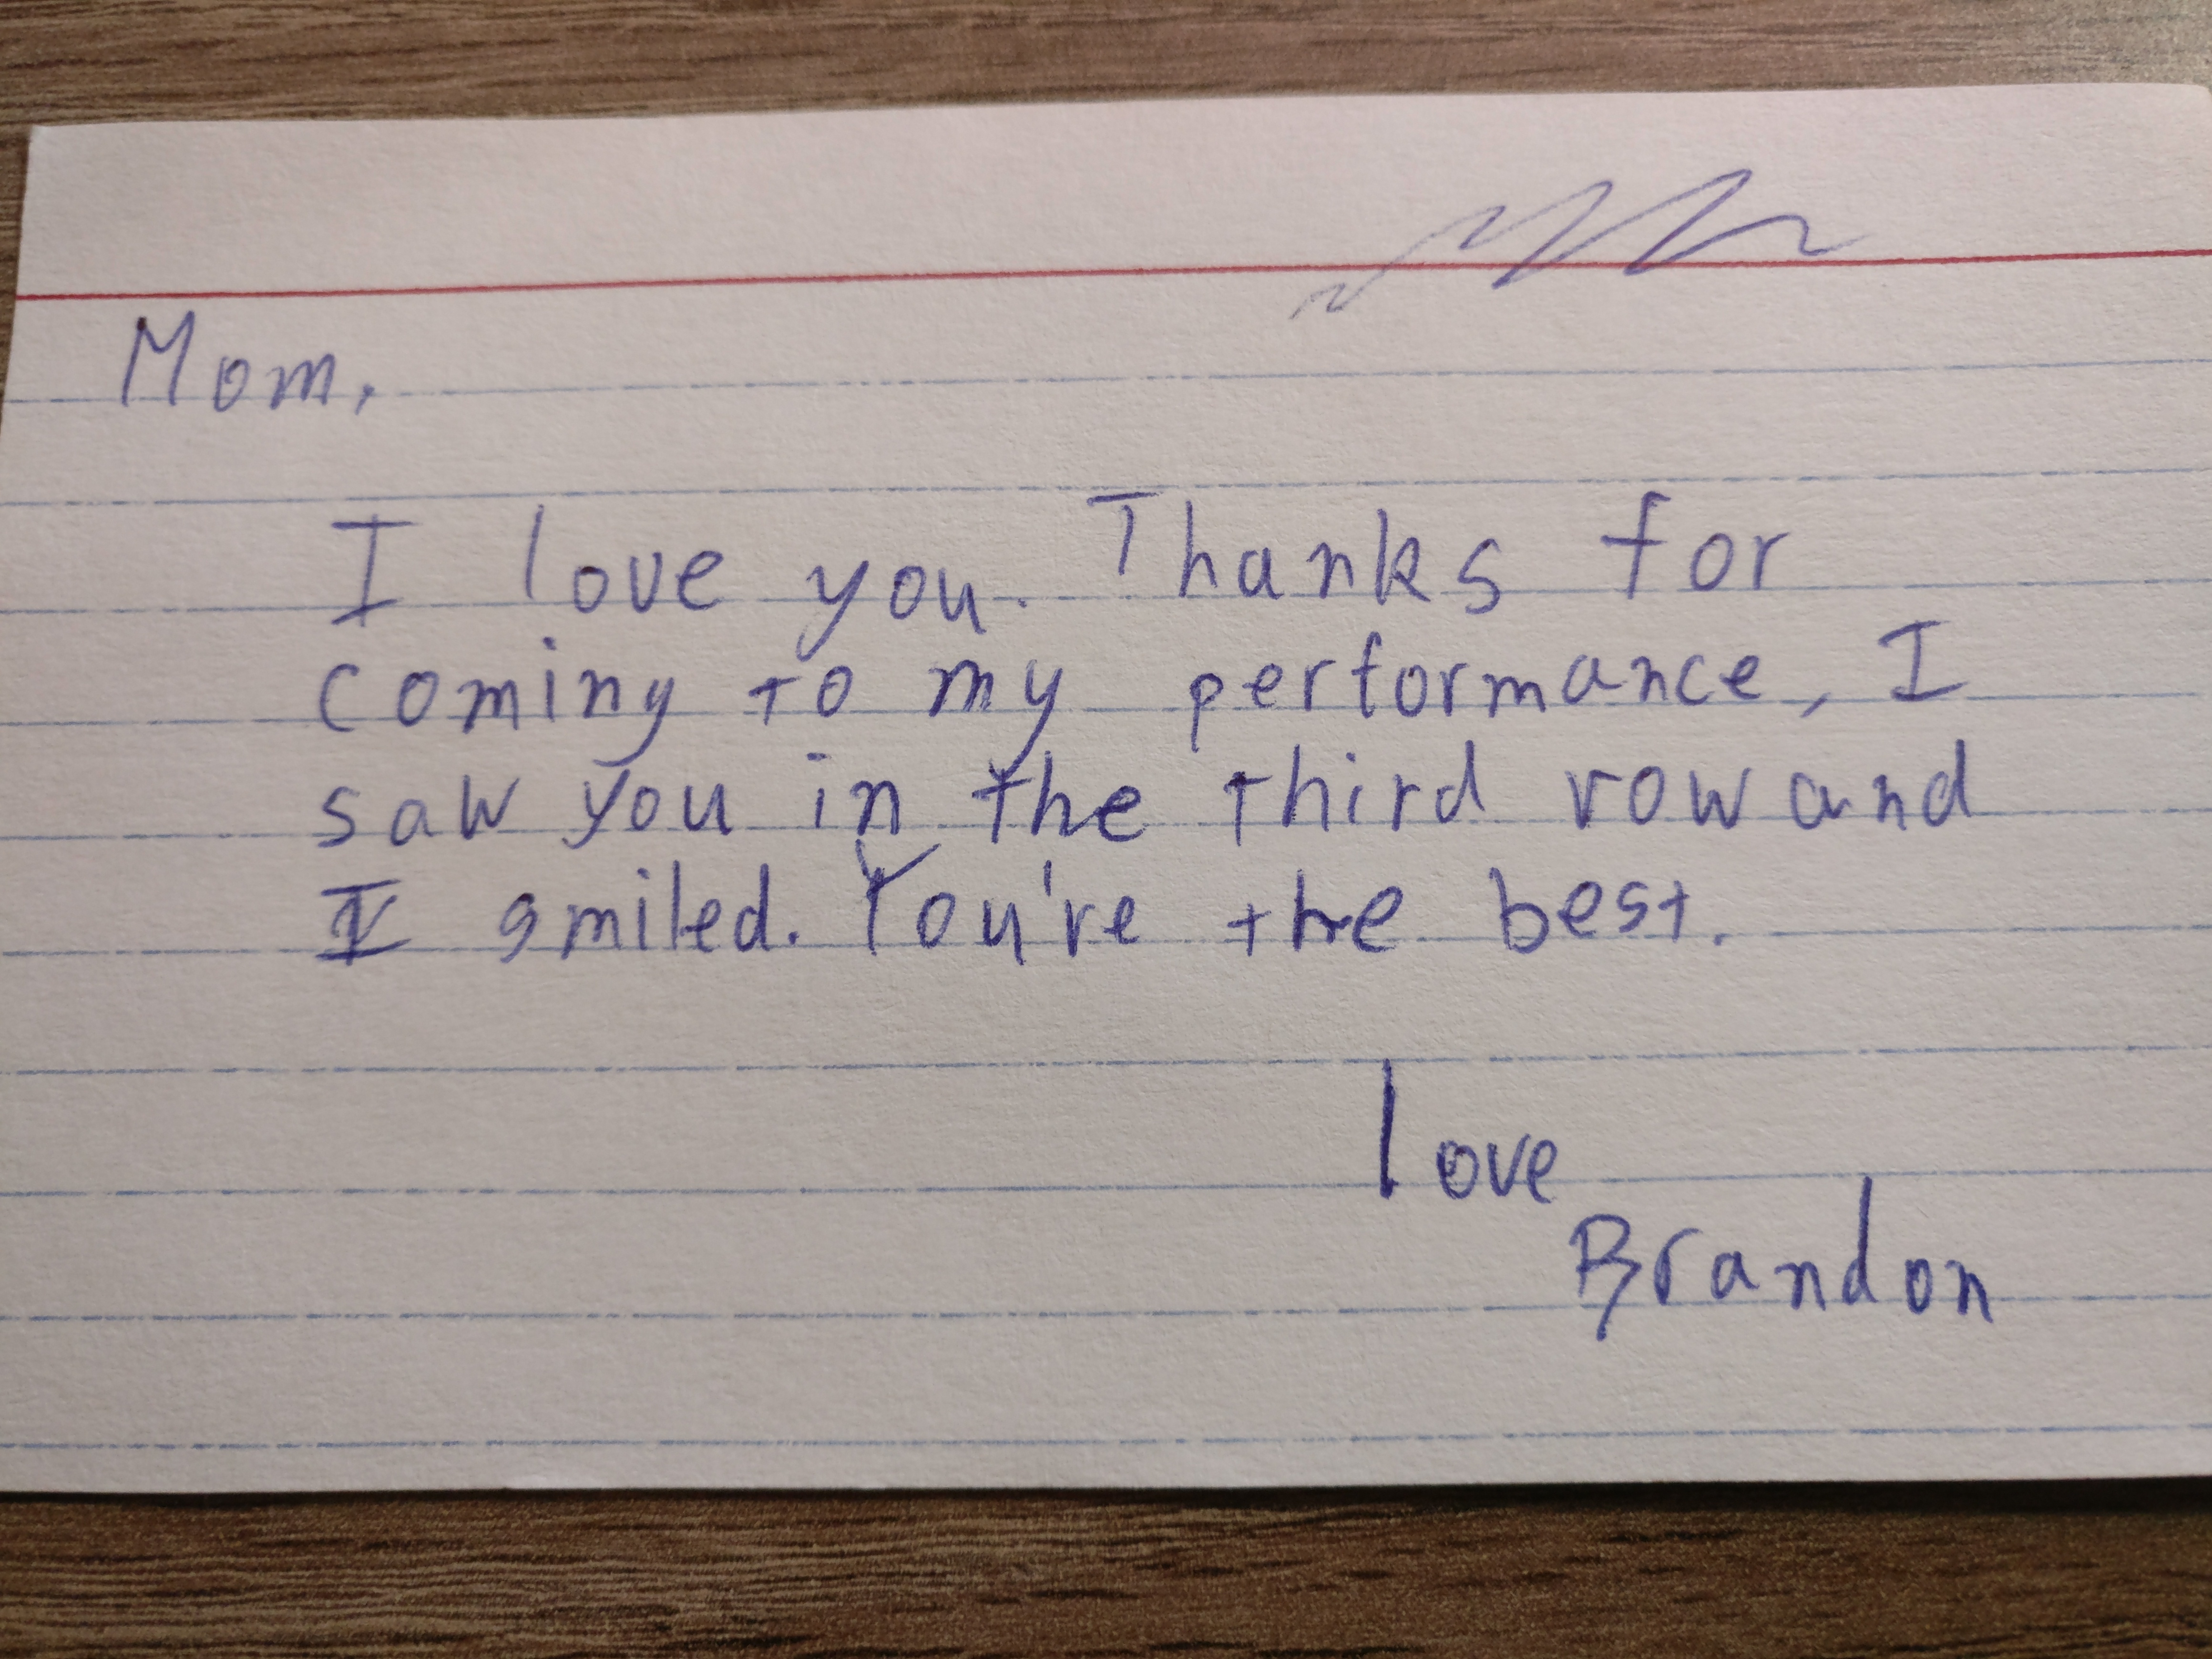 Mom,
I love you. Thanks for
coming to my performance, I
saw you in the third row and
I smiled. You're the best.
love
Brandon